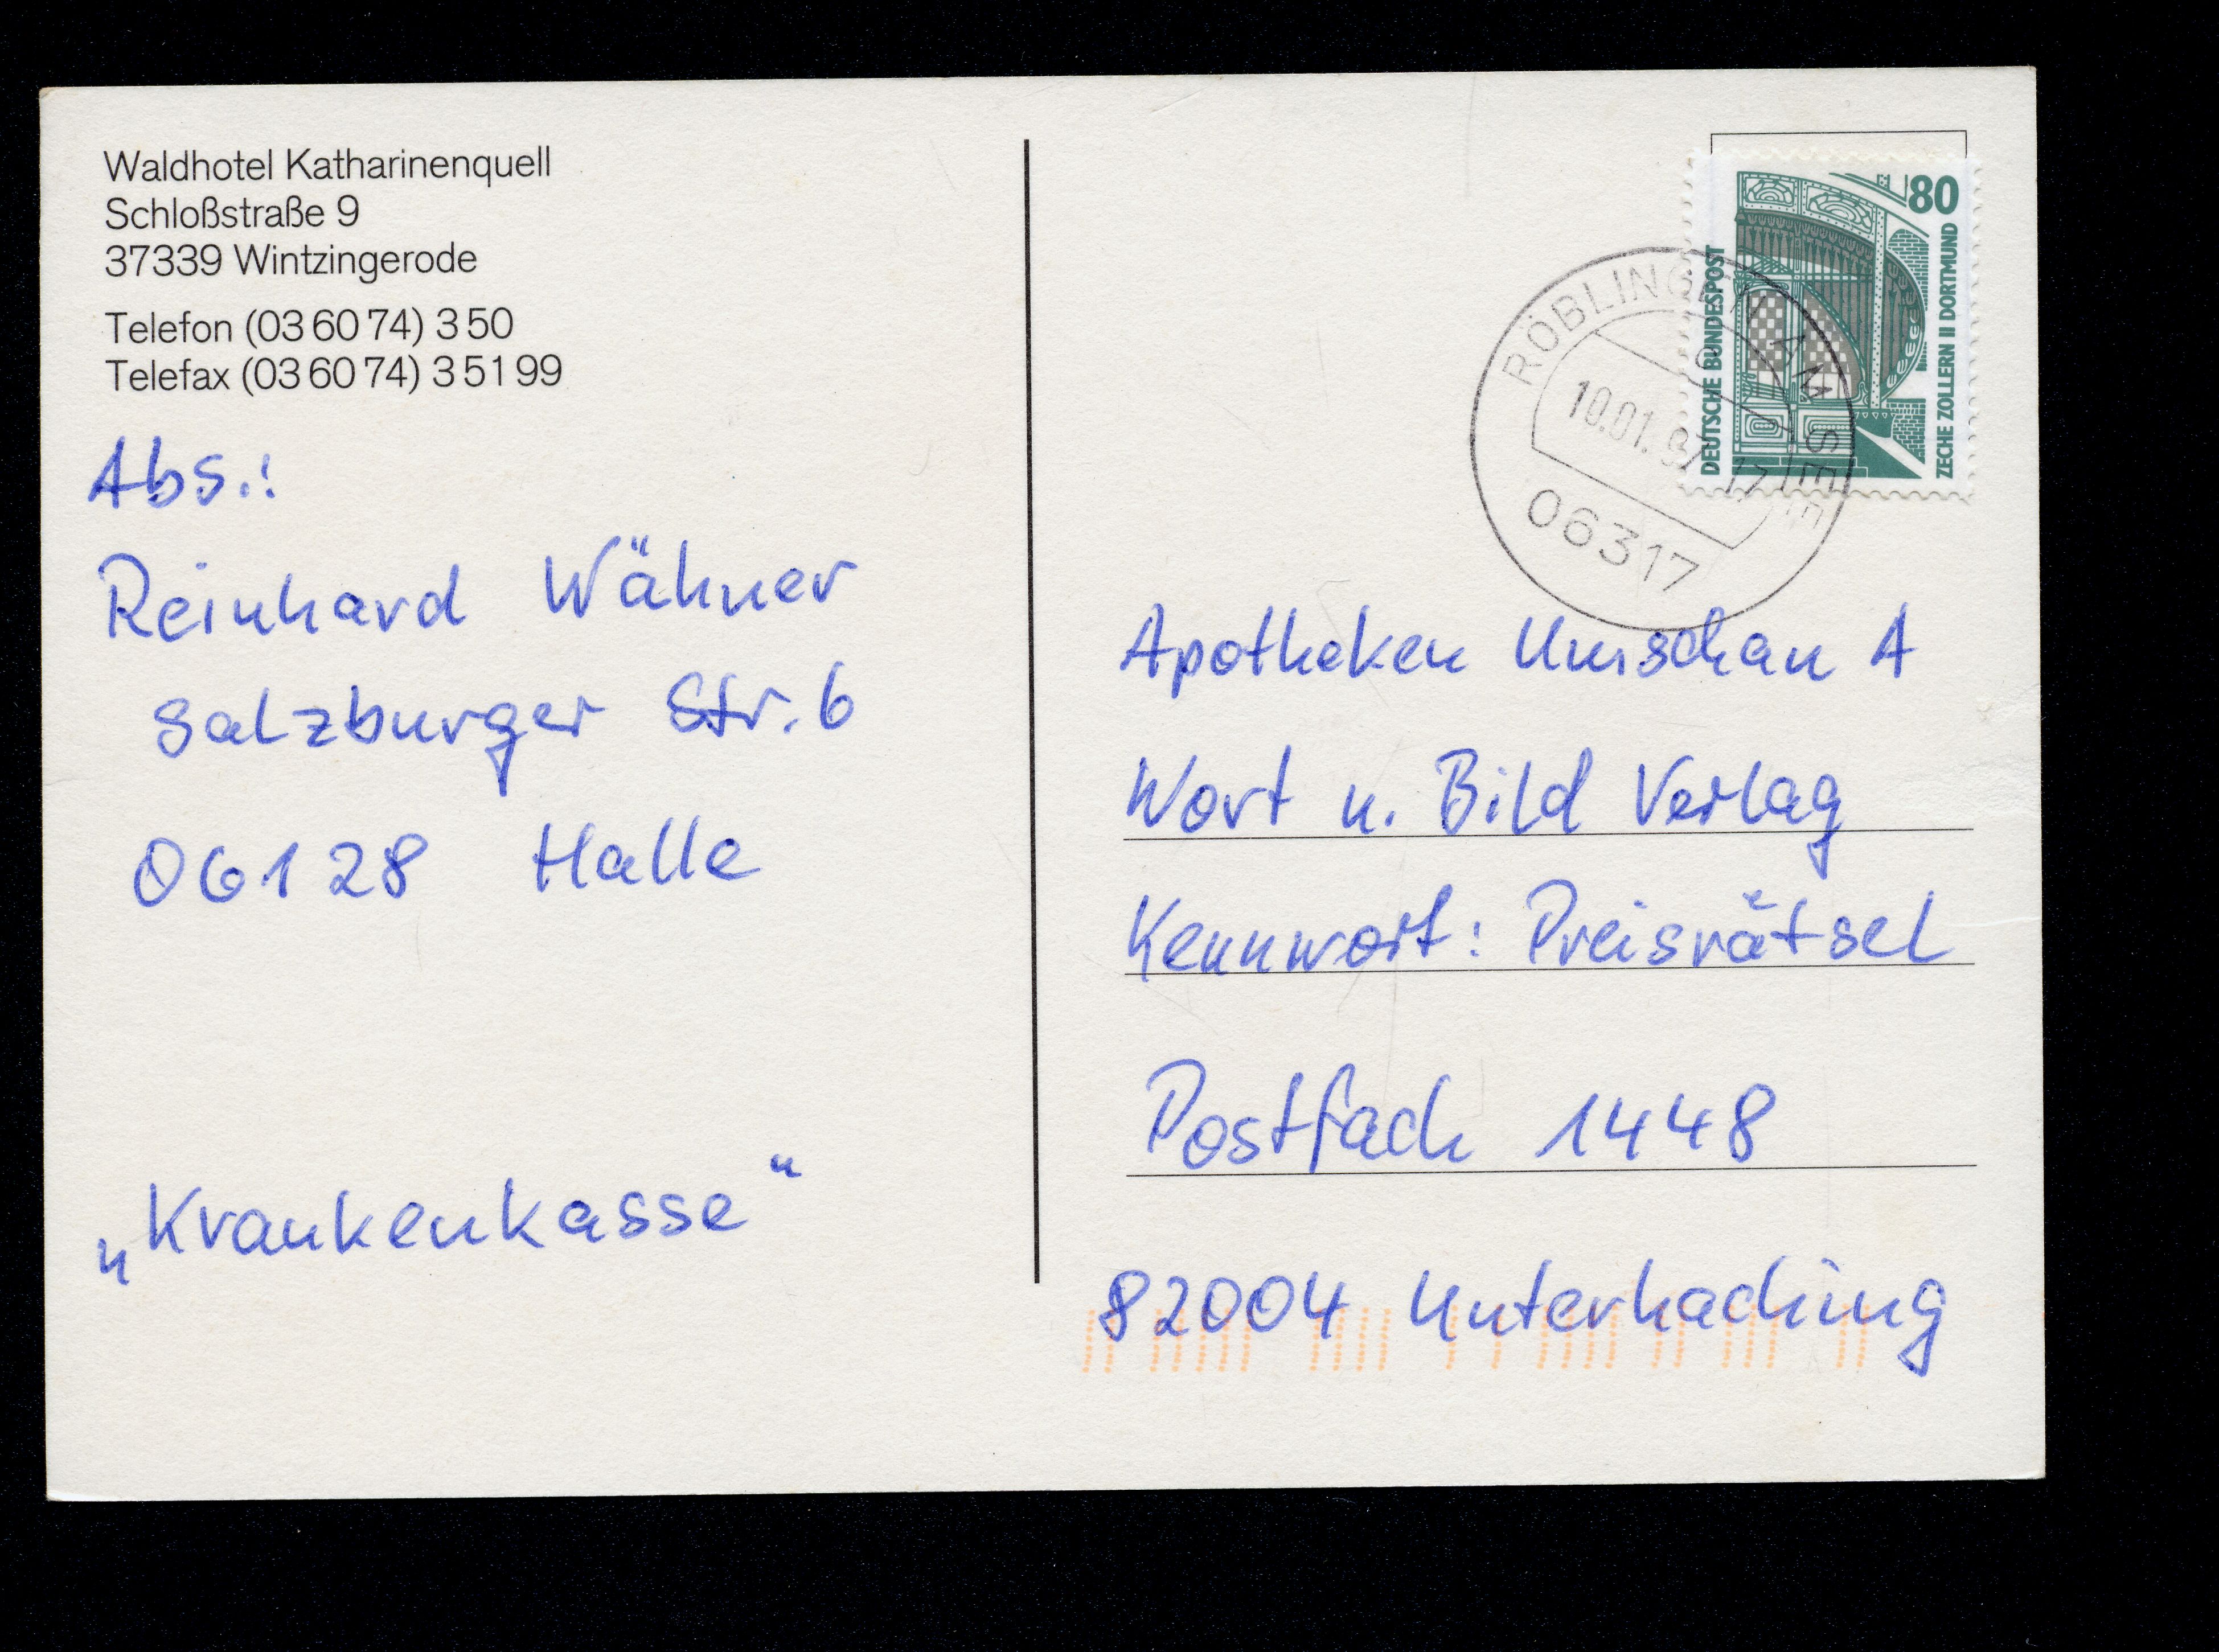 Waldhotel Katharinenquell
Schloßstraße 9
37339 Wintzingerode
Telefon (03 60 74) 3 50
Telefax (03 60 74) 3 51 99
Abs.:
Reinhard Wähner
Salzburger Str. 6
06128 Halle
„Krankenkasse“
80
DEUTSCHE BUNDESPOST
ZECHE ZOLLERN II DORTMUND
RÖBLINGEN AM SEE
10.01.97 17
06317
Apotheken Umschau A
Wort u. Bild Verlag
Kennwort: Preisrätsel
Postfach 1448
82004 Unterhaching